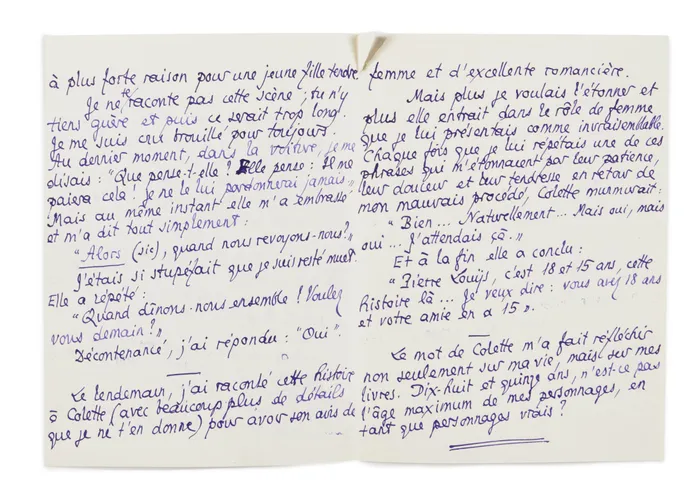 à plus forte raison pour une jeune fille tendre.
Je ne te raconte pas cette scène ; tu n'y
tiens guère et puis ce serait trop long.
Je me suis cru brouillé pour toujours.
Au dernier moment, dans la voiture, je me
disais : "Que pense-t-elle ! Elle pense : Il me
paiera cela ! je ne le lui pardonnerai jamais."
Mais au même instant elle m'a embrassé
et m'a dit tout simplement :
"Alors (sic), quand nous revoyons-nous ?"
J'étais si stupéfait que je suis resté muet.
Elle a répété :
"Quand dînons-nous ensemble ! Voulez
vous demain ?"
Décontenancé, j'ai répondu : "Oui".
Le lendemain, j'ai raconté cette histoire
à Colette (avec beaucoup plus de détails
que je ne t'en donne) pour avoir son avis de
femme et d'excellente romancière.
Mais plus je voulais l'étonner et
plus elle entrait dans le rôle de femme
que je lui présentais comme invraisemblable.
Chaque fois que je lui répétais une de ces
phrases qui m'étonnaient par leur patience,
leur douceur et leur tendresse en retour de
mon mauvais procédé, Colette murmurait :
"Bien... Naturellement... Mais oui, mais
oui... J'attendais çà."
Et à la fin elle a conclu :
"Pierre Louÿs, c'est 18 et 15 ans, cette
histoire là... Je veux dire : vous avez 18 ans
et votre amie en a 15".
Le mot de Colette m'a fait réfléchir
non seulement sur ma vie, mais sur mes
livres. Dix-huit et quinze ans, n'est-ce pas
l'âge maximum de mes personnages, en
tant que personnages vrais ?